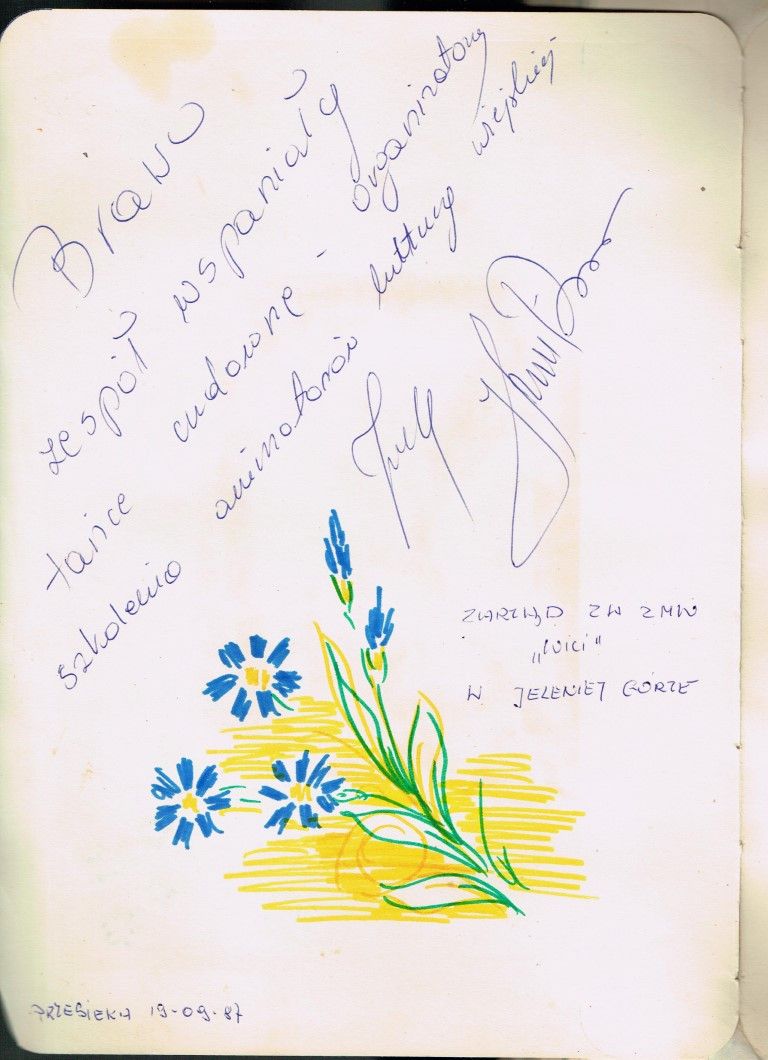 Brawo
zespół wspaniały
tańce cudowne - organizatorzy
szkolenia animatorów kultury wiejskiej
ZARZĄD ZW ZMW
„Wici"
W JELENIEJ GÓRZE
PRZESIEKA 19-09-87